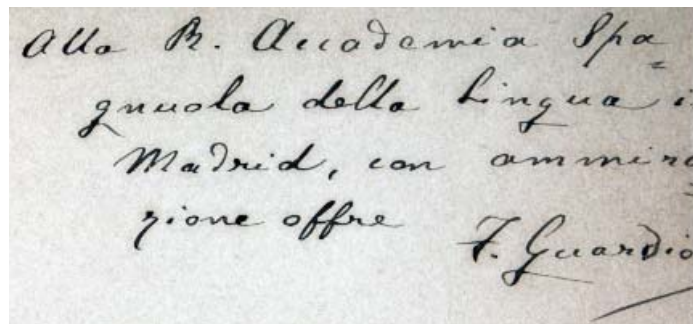 Alla R. Accademia Spa=
gnuola della Lingua
Madrid, con ammira
zione offre
F. Guardio